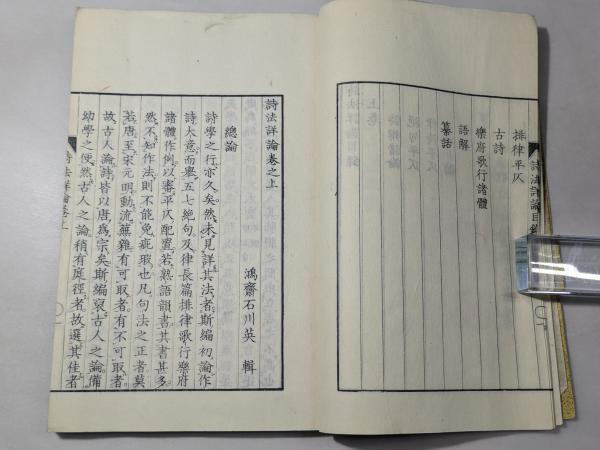 排律平仄
古詩
樂府歌行諸體
語解
纂話
詩法詳論目錄
詩法詳論卷之上
鴻齋石川英 輯
總論
詩學之行亦久矣然未見詳其法者斯編初論作
詩大意而擧五七絕句及律長篇排律歌行樂府
諸體作例以審平仄配置若熟語韻書其書甚多
然不知作法則不能免疵瑕也凡句法之正者莫
若唐至宋元明動流蕪雜有可取者有不可取者
故古人論詩皆以唐爲宗矣斯編裒古人之論備
幼學之便然古人之論稍有庭徑者故選其佳者
詩法詳論卷上